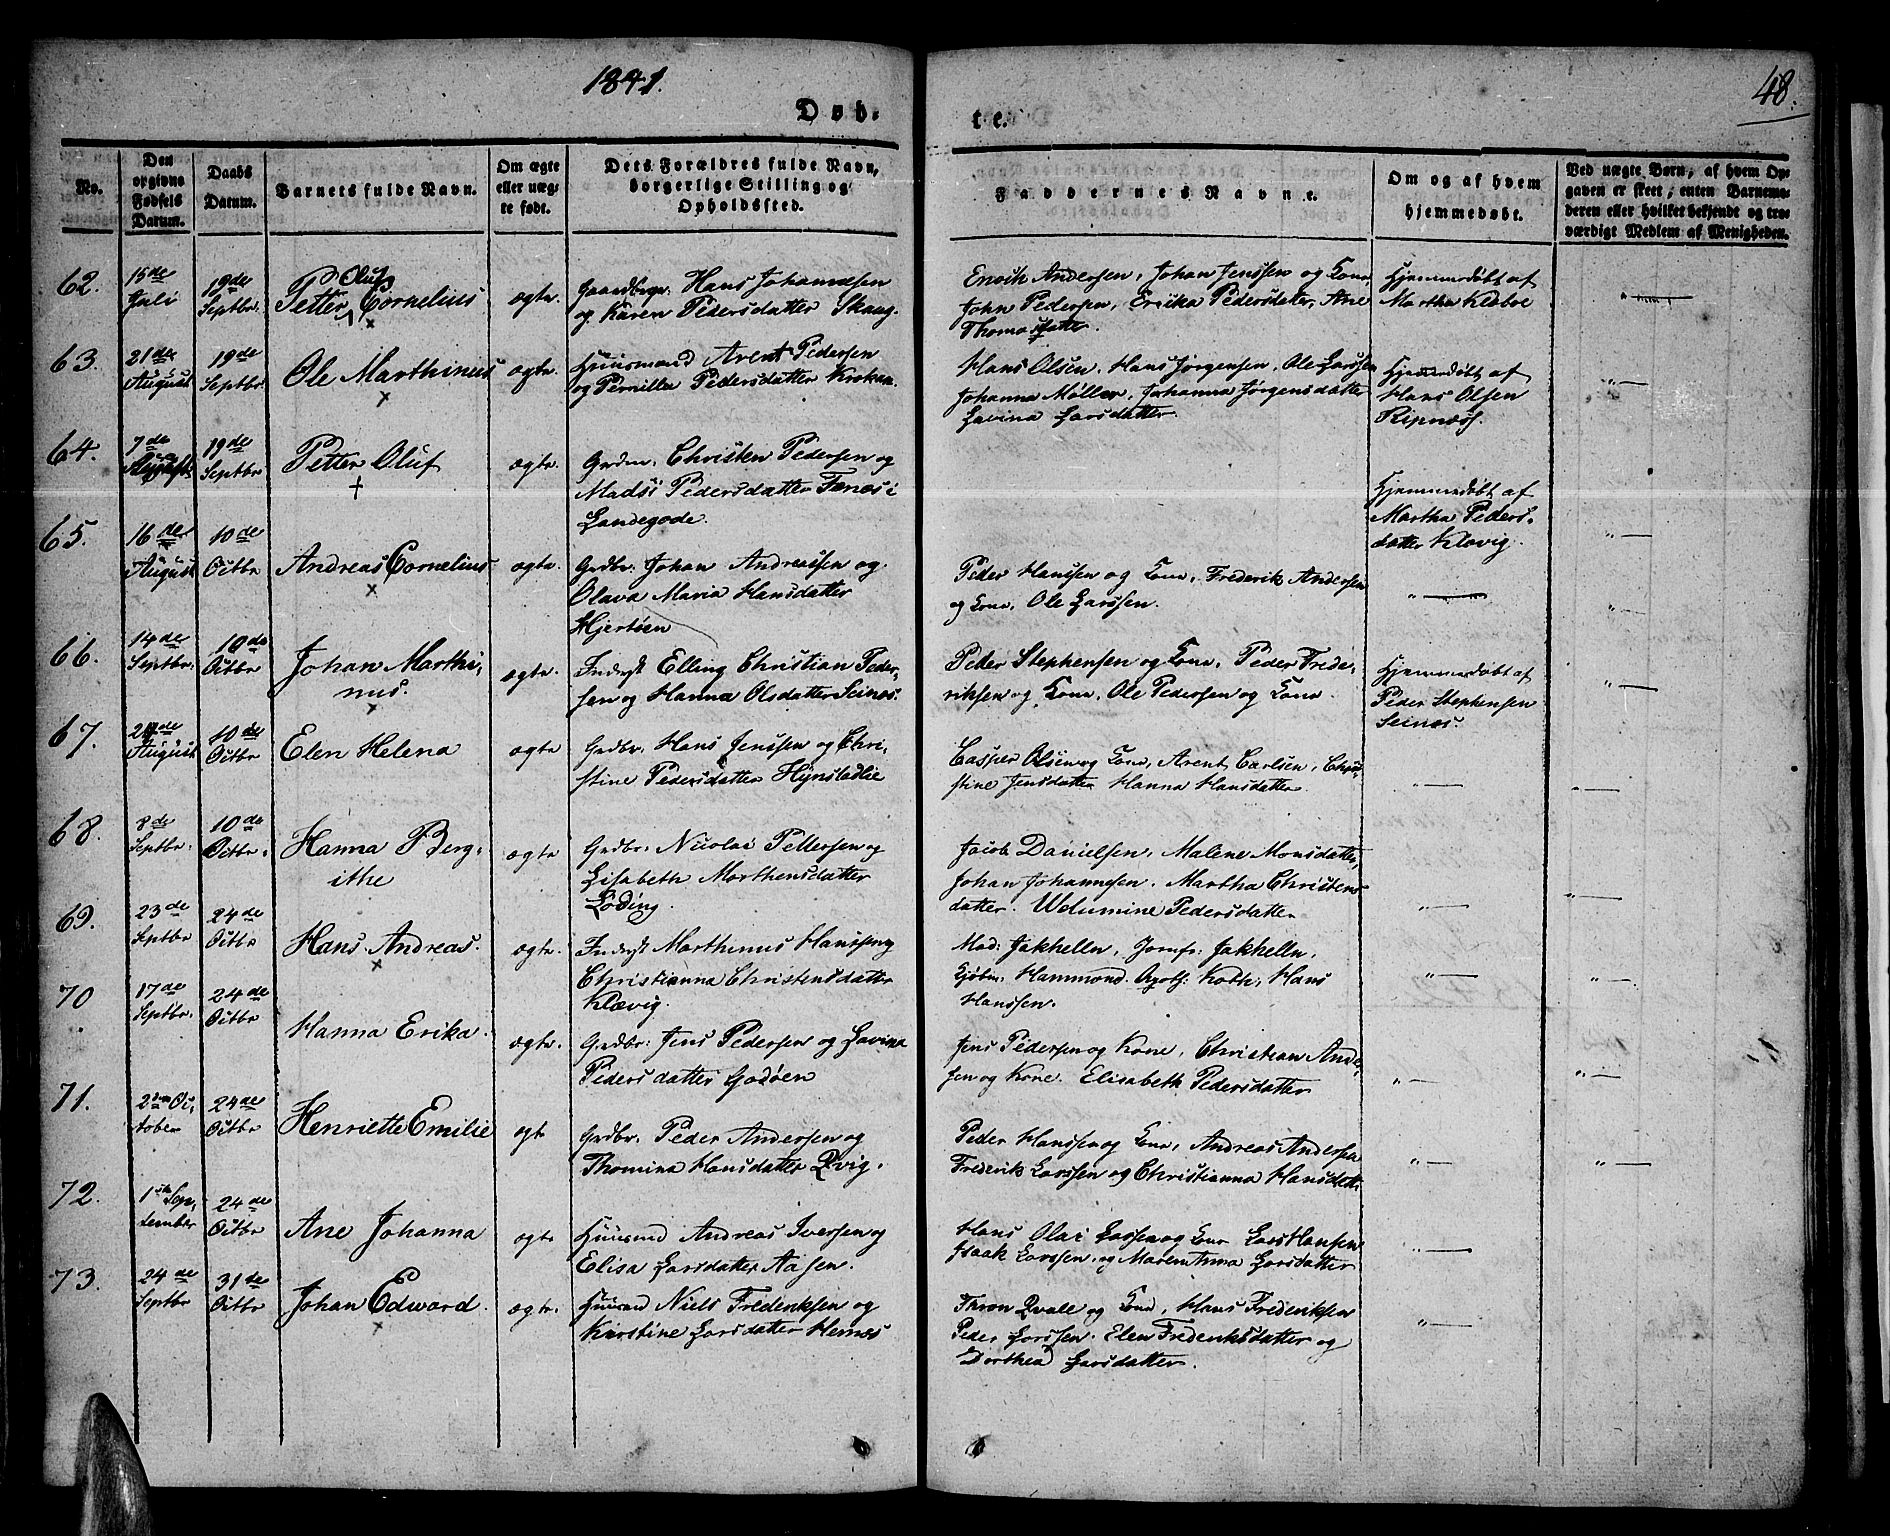 1841.
48.
Døb-
te.
No.
Den opgivne Fødsels Datum.
Daabs Datum.
Barnets fulde Navn.
Om ægte eller uægte født.
Dets Forældres fulde Navn, borgerlige Stilling og Opholdssted.
Faddernes Navne.
Om og af hvem hjemmedøbt.
Ved uægte Børn, af hvem Opgaven er skeet; enten Barnemoderen eller hvilket bekjendt og troværdigt Medlem af Menigheden.
62.
15de Juli
19de Septbr.
Petter Oluf Cornelius
ægte
Gaardbrgr. Hans Johannesen
og Karen Pedersdatter Skaug.
Enoch Andersen, Johan Jenssen og Kone
John Pedersen, Erika Pedersdater, Ane
Thomasdatter.
Hjemmedøbt af
Martha Kedboe
63.
21de August
19de Septbr.
Ole Marthinus
ægte
Huusmand Arent Pedersen
og Pernilla Pedersdatter Krokan.
Hans Olsen, Hans Jørgensen, Ole Larssen
Johanna Møller, Johanna Jørgensdatter
Lavina Larsdatter.
Hjemmedøbt af
Hans Olsen
Ripnæss.
64.
7de
19de Septbr
Petter Oluf
ægte.
Grdm. Christen Pedersen og
Madsi Pedersdatter Fenæs i
Landegode.
Hjemmedøbt af
Martha Peders-
datter Kløvig.
65.
16de August
10de Octbr
Andreas Cornelius
ægte
Grdbr. Johan Andreassen og
Olava Maria Hansdatter
Hjertøen
Peder Hanssen og Kone, Frederik Andersen
og Kone, Ole Larssen.
66.
14de Septbr.
10de Octbr
Johan Marthi-
nus.
ægte.
Inderst Elling Christian Peder-
sen og Hanna Olsdatter Seines.
Peder Stephensen og Kone, Peder Frede-
riksen og Kone, Ole Pedersen og Kone.
Hjemmedøbt af
Peder Stephensen
Seines.
67.
August
10de Octbr
Elen Helena
ægte
Grdbr. Hans Jenssen og Chri-
stine Pedersdatter Hynstadlie
Casper Olsen og Kone, Arent Carlsen, Chri-
stine Jensdatter Hanna Hansdatter.
68.
8de Septbr.
10de Octbr.
Hanna Berg-
ithe
ægte
Grdbr. Nicolai Pettersen og
Lisabeth Morthensdatter
Løding.
Jacob Danielsen, Malene Monsdatter,
Johan Johannesen. Martha Christens
datter. Wolumine Pedersdatter
69.
23de Septbr
24de Octbr
Hans Andreas.
ægte.
Inderst Marthinus Hanssen og
Christianna Christensdatter
Kløvig.
Mad: Jakhellen, Jomfr: Jakhellen,
Kjøbm. Hammond. Koth, Hans
Hanssen.
70
17de Septbr.
24de Octbr
Hanna Erika.
ægte.
Grdbr: Jens Pedersen og Lavina
Pedersdatter Godøen
Jens Pedersen og Kone, Christian Ander-
sen og Kone. Elisabeth Pedersdatter
71.
October
24de Octbr
Henriette Emilie
ægte
Grdbr. Peder Andersen og
Thomina Hansdatter Qvig.
Peder Hanssen og Kone, Andreas Andersen
Frederik Larssen og Christianna Hansdatt.
72.
1ste September
24de Octbr
Ane Johanna
ægte
Huusmd Andreas Iversen og
Elisa Larsdatter Aasen.
Hans Olai Larsen og Kone Lars Hansen
Isaak Larssen, og Maren Anna Larsdatter
73.
24de Septbr
31de Octbr
Johan Edward.
ægte.
Huusmd Niels Frederiksen og
Kirstine Larsdatter Hernæs
Thron Qvale og Kone, Hans Frederiksen
Peder Larssen. Elen Frederiksdatter og
Dorthea Larsdatter.